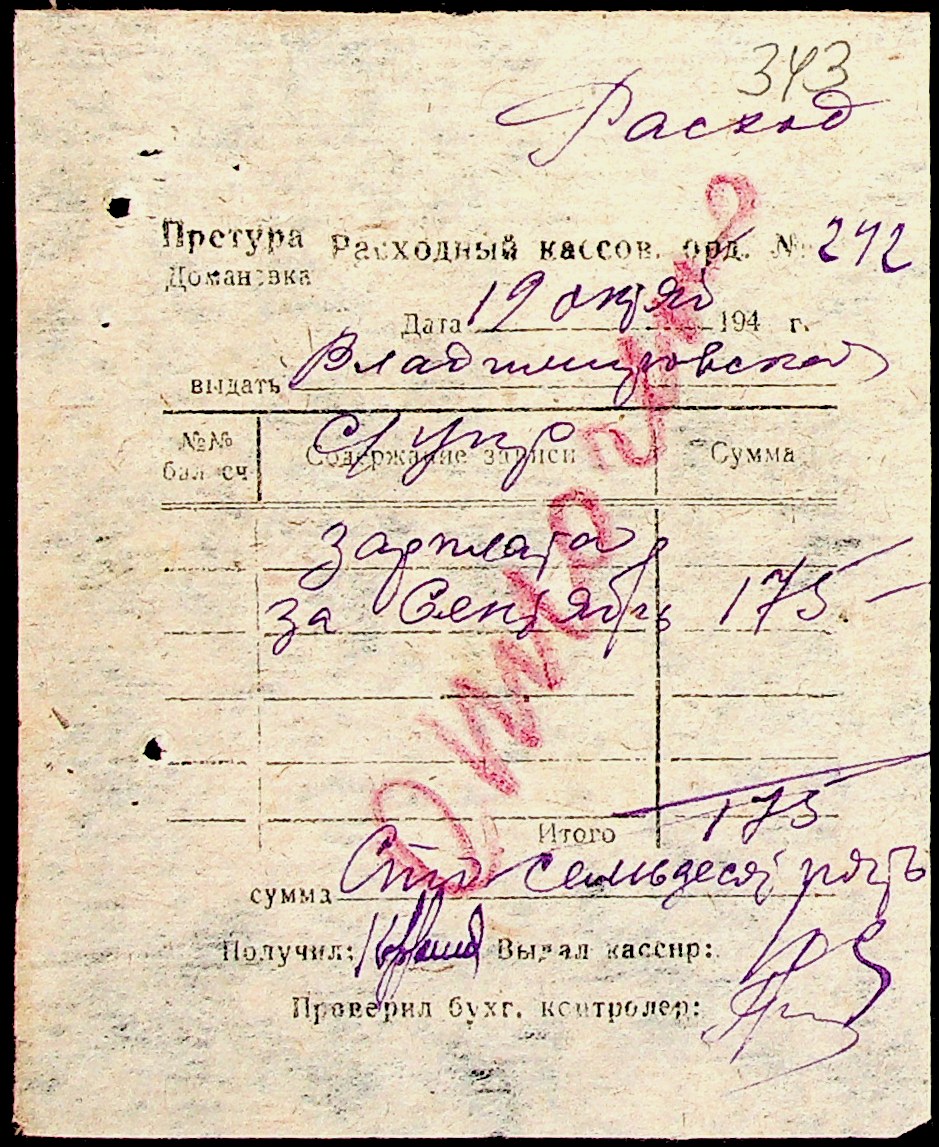 343
Расход
Претура Расходный кассов. орд. № 242
Домановка
Дата 19 октяб 194 г.
выдать Владимировской
№№ бал сч Содержание записи Сумма
зарплата
за Сентябрь 175 —
Итого 175
сумма Сто семьдесят пять
Получил: Выдал кассир:
Проверил бухг. контролер: